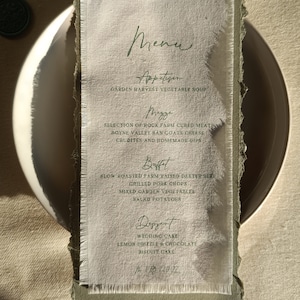 Menu
Appetiser
GARDEN HARVEST VEGETABLE SOUP
Mezze
SELECTION OF ROCK FARM CURED MEATS
BOYNE VALLEY BAN GOATS CHEESE
CRUDITES AND HOMEMADE DIPS
Buffet
SLOW ROASTED FARM RAISED DEXTER
GRILLED PORK CHOPS
MIXED GARDEN VEGETABLES
SALAD POTATOES
Dessert
WEDDING CAKE
LEMON DRIZZLE & CHOCOLATE
BISCUIT CAKE